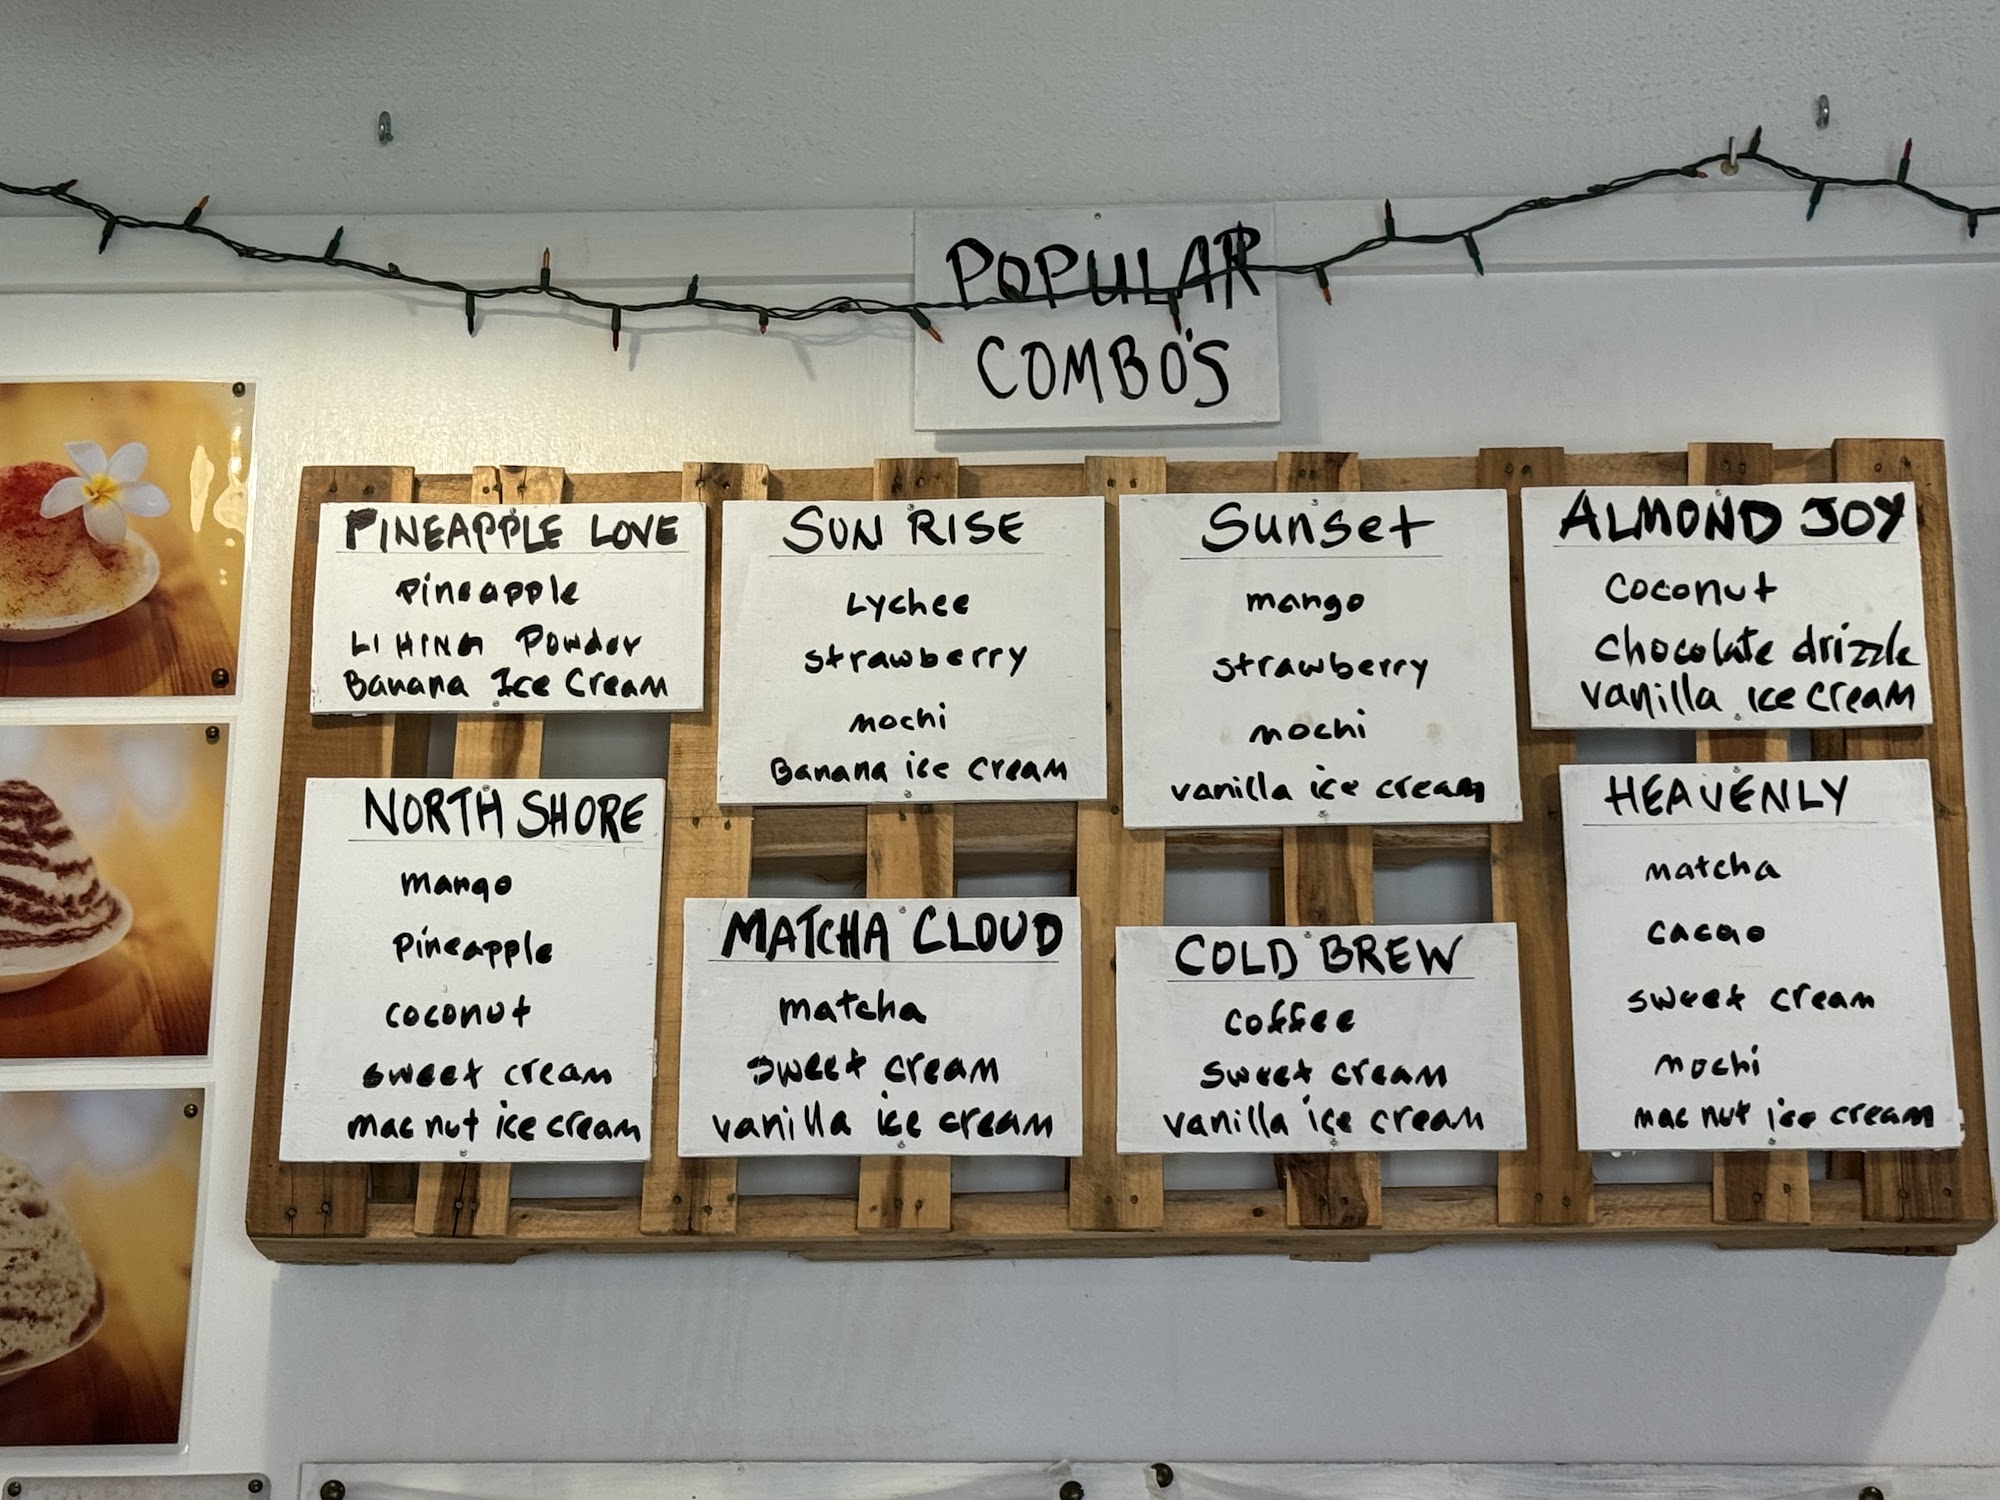 POPULAR
COMBO'S
PINEAPPLE LOVE
Pineapple
LI HING Powder
Banana Ice Cream
SUN RISE
Lychee
strawberry
mochi
Banana ice cream
Sunset
mango
strawberry
mochi
vanilla ice cream
ALMOND JOY
coconut
chocolate drizzle
vanilla ice cream
NORTH SHORE
mango
pineapple
coconut
sweet cream
mac nut ice cream
MATCHA CLOUD
matcha
sweet cream
vanilla ice cream
COLD BREW
coffee
sweet cream
vanilla ice cream
HEAVENLY
matcha
cacao
sweet cream
mochi
mac nut ice cream